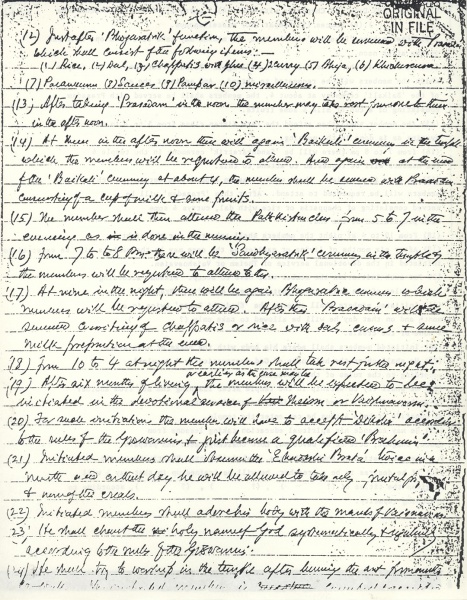 ORIGINAL
IN FILE
(12) Just after 'Bhogaratik' function, the members will be served with
which shall consist of the following items:—
(1) Rice, (2) Dal, (3) Chappatis with ghee (4) Curry (5) Bhaja, (6)
(7) (8) Sauces (9) Pampar (10) miscellaneous.
(13) After taking 'Prasadam' in the noon the member may take rest for one to three
in the after noon.
(14) At three in the after noon there will again 'Baikali' ceremony in the temple
which the members will be required to attend. And again at the end
of the 'Baikali' ceremony at about 4, the member shall be served with Prasadam
consisting of a cup of milk & some fruits.
(15) The member shall then attend the class from 5 to 7 in the
evening as is done in the morning.
(16) From 7 to 8 P.M. there will be 'Sandhyaratik' ceremony in the temple &
the members will be required to attend to this.
(17) At nine in the night, there will be again Bhogaratik ceremony which
members will be required to attend. After this 'Prasadam' will be
served consisting of chappatis or rice with dal, curry & some
milk preparation at the end.
(18) From 10 to 4 at night the members shall take rest for the night.
or earlier as the case may be
(19) After six months of living, the members will be expected to be
initiated in the devotional service of Theism or Vaishnavism.
(20) For such initiations the member will have to accept 'Diksha' according
to the rules of the Goswamins & first become a qualified 'Brahmin'.
(21) Initiated members shall observe the 'Ekadashi Brata' twice in a
month and on that day he will be allowed to take only fruits
& none of the cereals.
(22) Initiated members shall adore his body with the marks of Vaisnavas
23. He shall chant the holy name of God systematically & regularly
according to the rules of the Goswamis.
(24) He shall try to worship in the temple after learning the art from